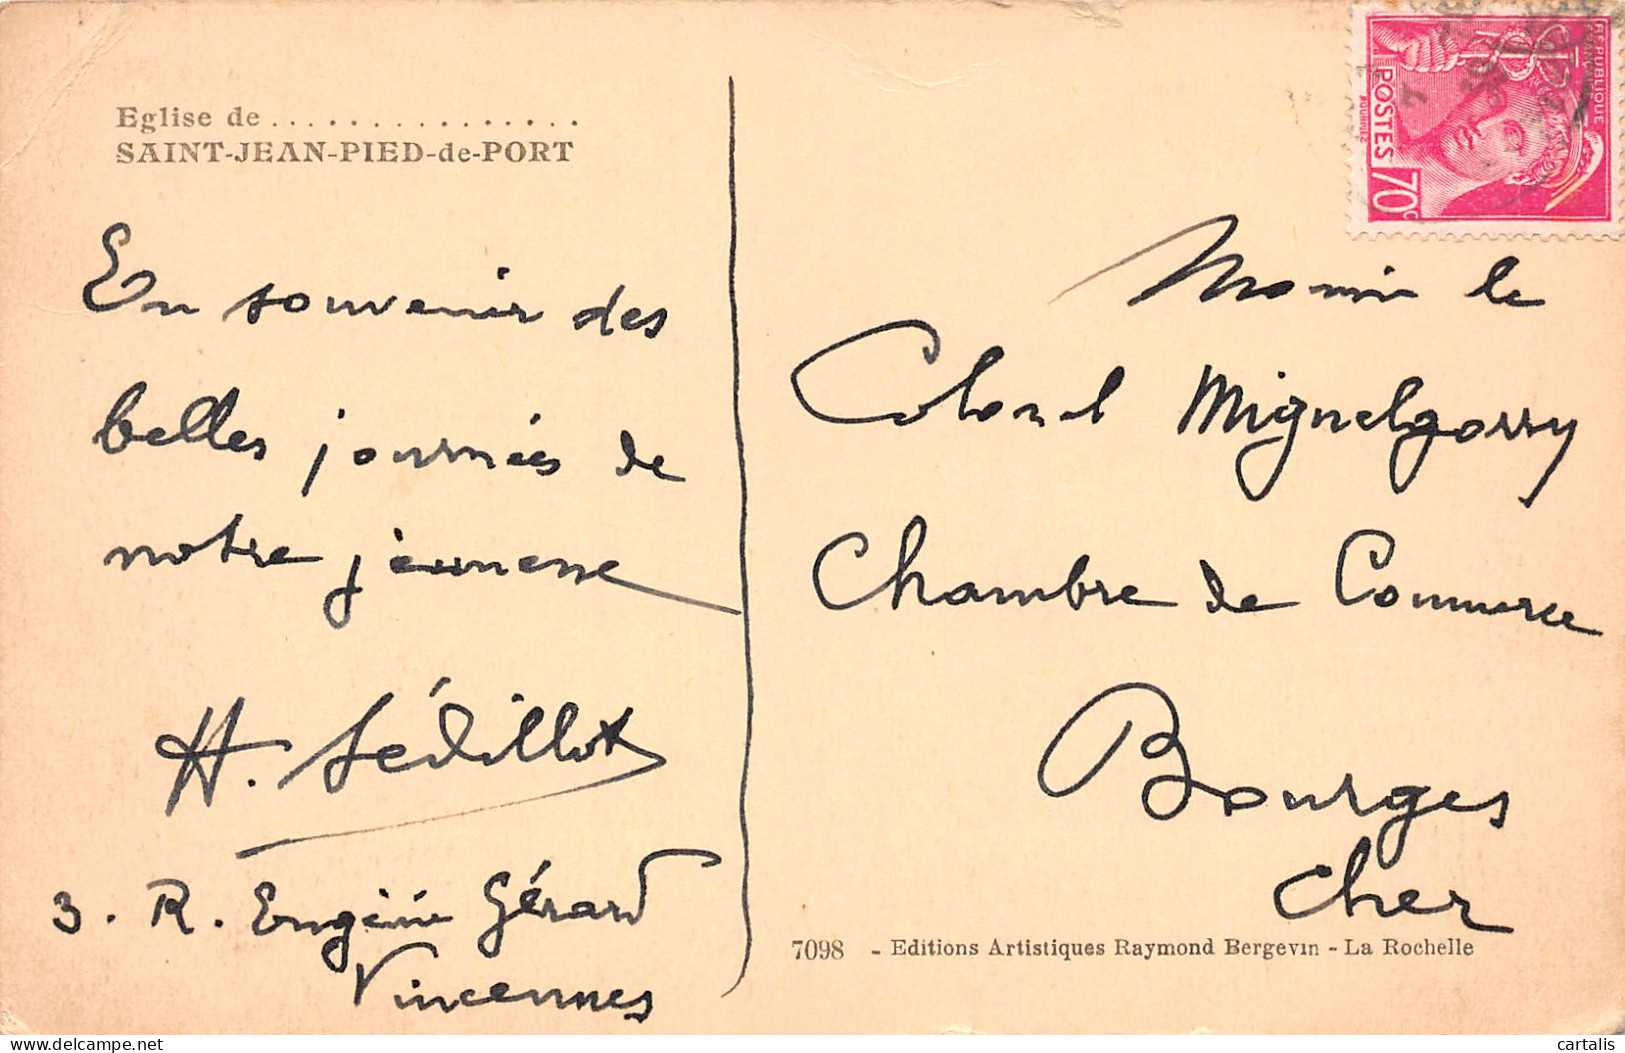 Eglise de ................
SAINT-JEAN-PIED-de-PORT
En souvenir des
belles journées de
notre jeunesse
H. Sédillot
3. R. Eugénie Gérard
Vincennes
RÉPUBLIQUE
FRANÇAISE
POSTES
70c
le
Colonel Miguelgorry
Chambre de Commerce
Bourges
Cher
7098 - Editions Artistiques Raymond Bergevin - La Rochelle
delcampe.net
cartalis